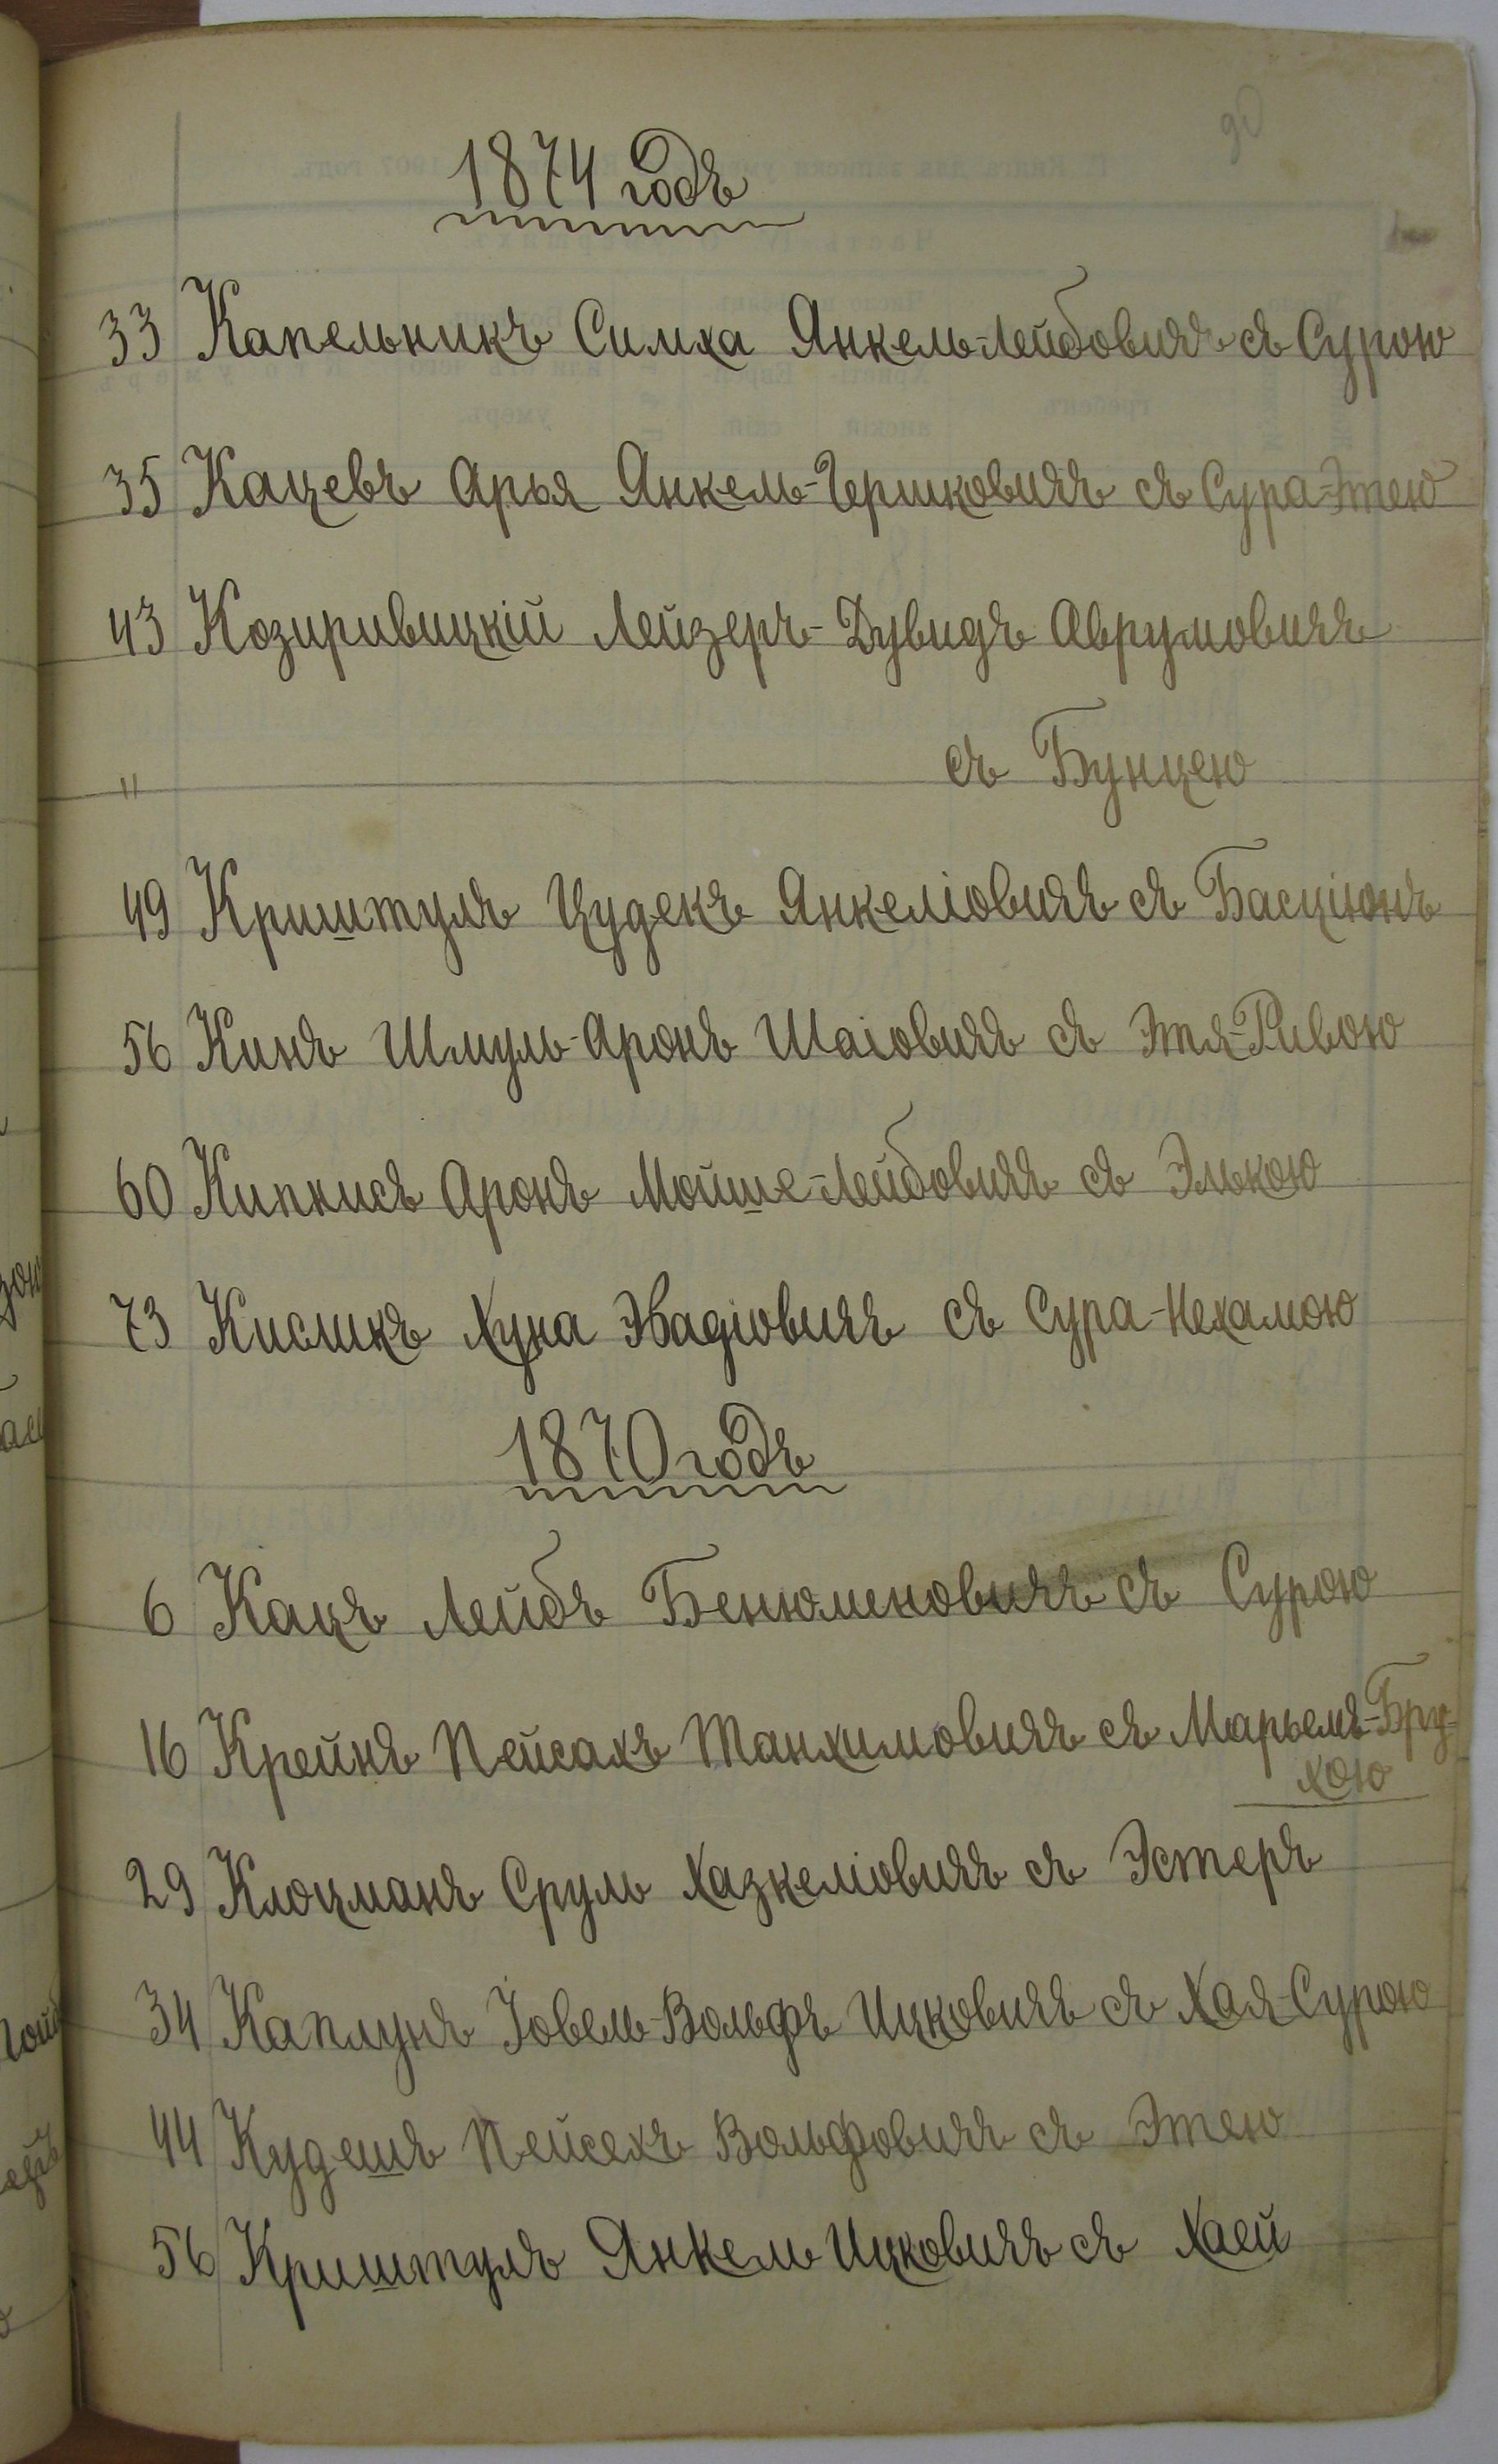 1874 годъ
33 Капельникъ Симха Янкель-Лейбовичъ съ Сурою
35 Кацевъ Арья Янкель-Гершковичъ съ Сура-Этею
43 Козиривицкій Лейзеръ-Дувидъ Аврумовичъ
" съ Бунцею
49 Криштулъ Цудекъ Янкеліовичъ съ Басціонъ
56 Кинъ Шмуль-Аронъ Шаіовичъ съ Этя-Ривою
60 Кипнисъ Аронъ Мойше-Лейбовичъ съ Элькою
73 Кисликъ Хуна Эвадіовичъ съ Сура-Нехамою
1870 годъ
6 Кацъ Лейбъ Бенюменовичъ съ Сурою
16 Крейнъ Пейсахъ Танхимовичъ съ Марьемъ-Бру-
хою
29 Клоцманъ Сруль Хазкеліовичъ съ Эстеръ
34 Каплунъ Іовель-Вольфъ Ицковичъ съ Хая-Сурою
44 Кудешъ Пейсехъ Вольфовичъ съ Этею
56 Криштулъ Янкель Ицковичъ съ Хаей